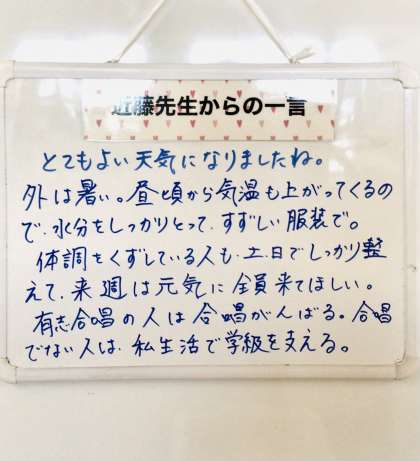 近藤先生からの一言
とてもよい天気になりましたね。
外は暑い。昼頃から気温も上がってくるの
で、水分をしっかりとって、すずしい服装で。
体調をくずしている人も、土、日でしっかり整
えて、来週は元気に全員来てほしい。
有志合唱の人は合唱がんばる。合唱
でない人は、私生活で学級を支える。